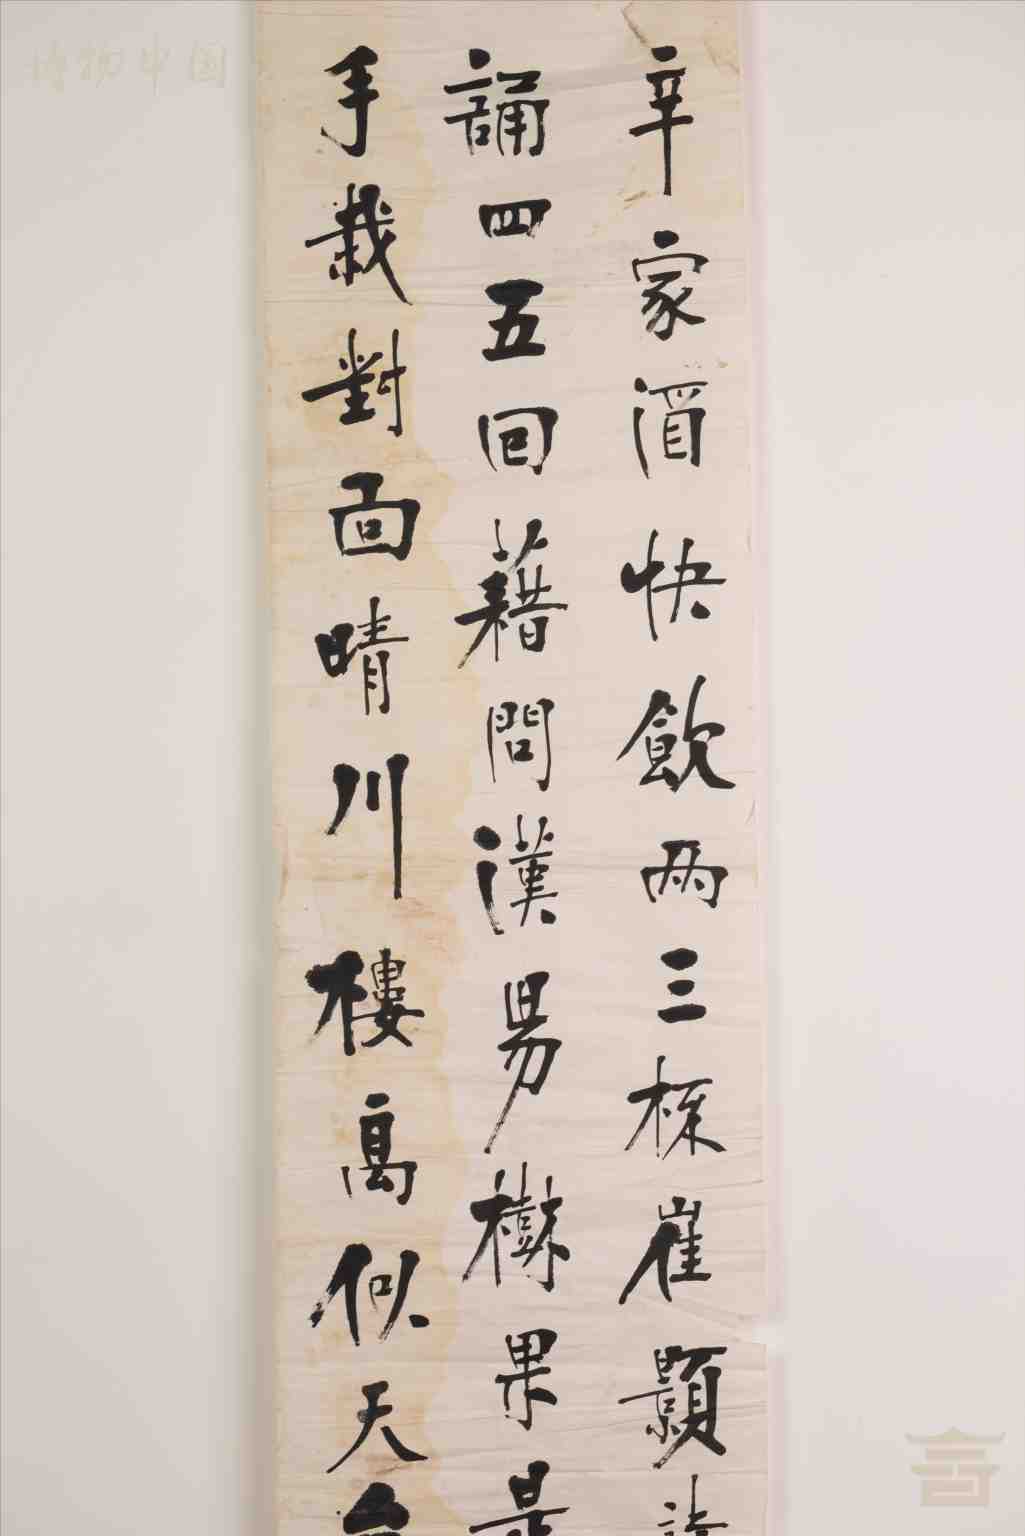 辛家酒快飲兩三杯崔顥詩
誦四五回藉問漢昜樹果是
手栽對面晴川樓高似天台
博物中国